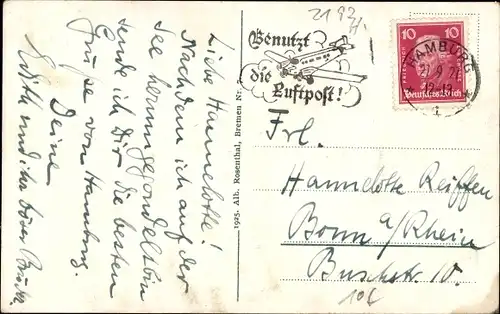 Liebe Hannelotte!
Nachdem ich auf der
See herumgegondelt bin
sende ich Dir die besten
Grüße von Hamburg.
Deine
Edith und ihr böser
1925. Alb. Rosenthal, Bremen Nr.
Benutzt
die
Luftpost!
10 10
Deutsches Reich
HAMBURG
Frl.
Hannelotte Reiffen
Bonn a/Rhein
Buschstr. 10.